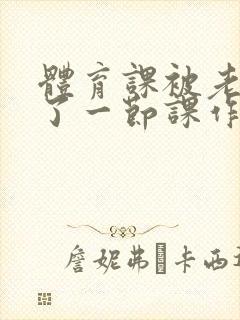 體育課被老
了一節課作
詹妮弗·卡西